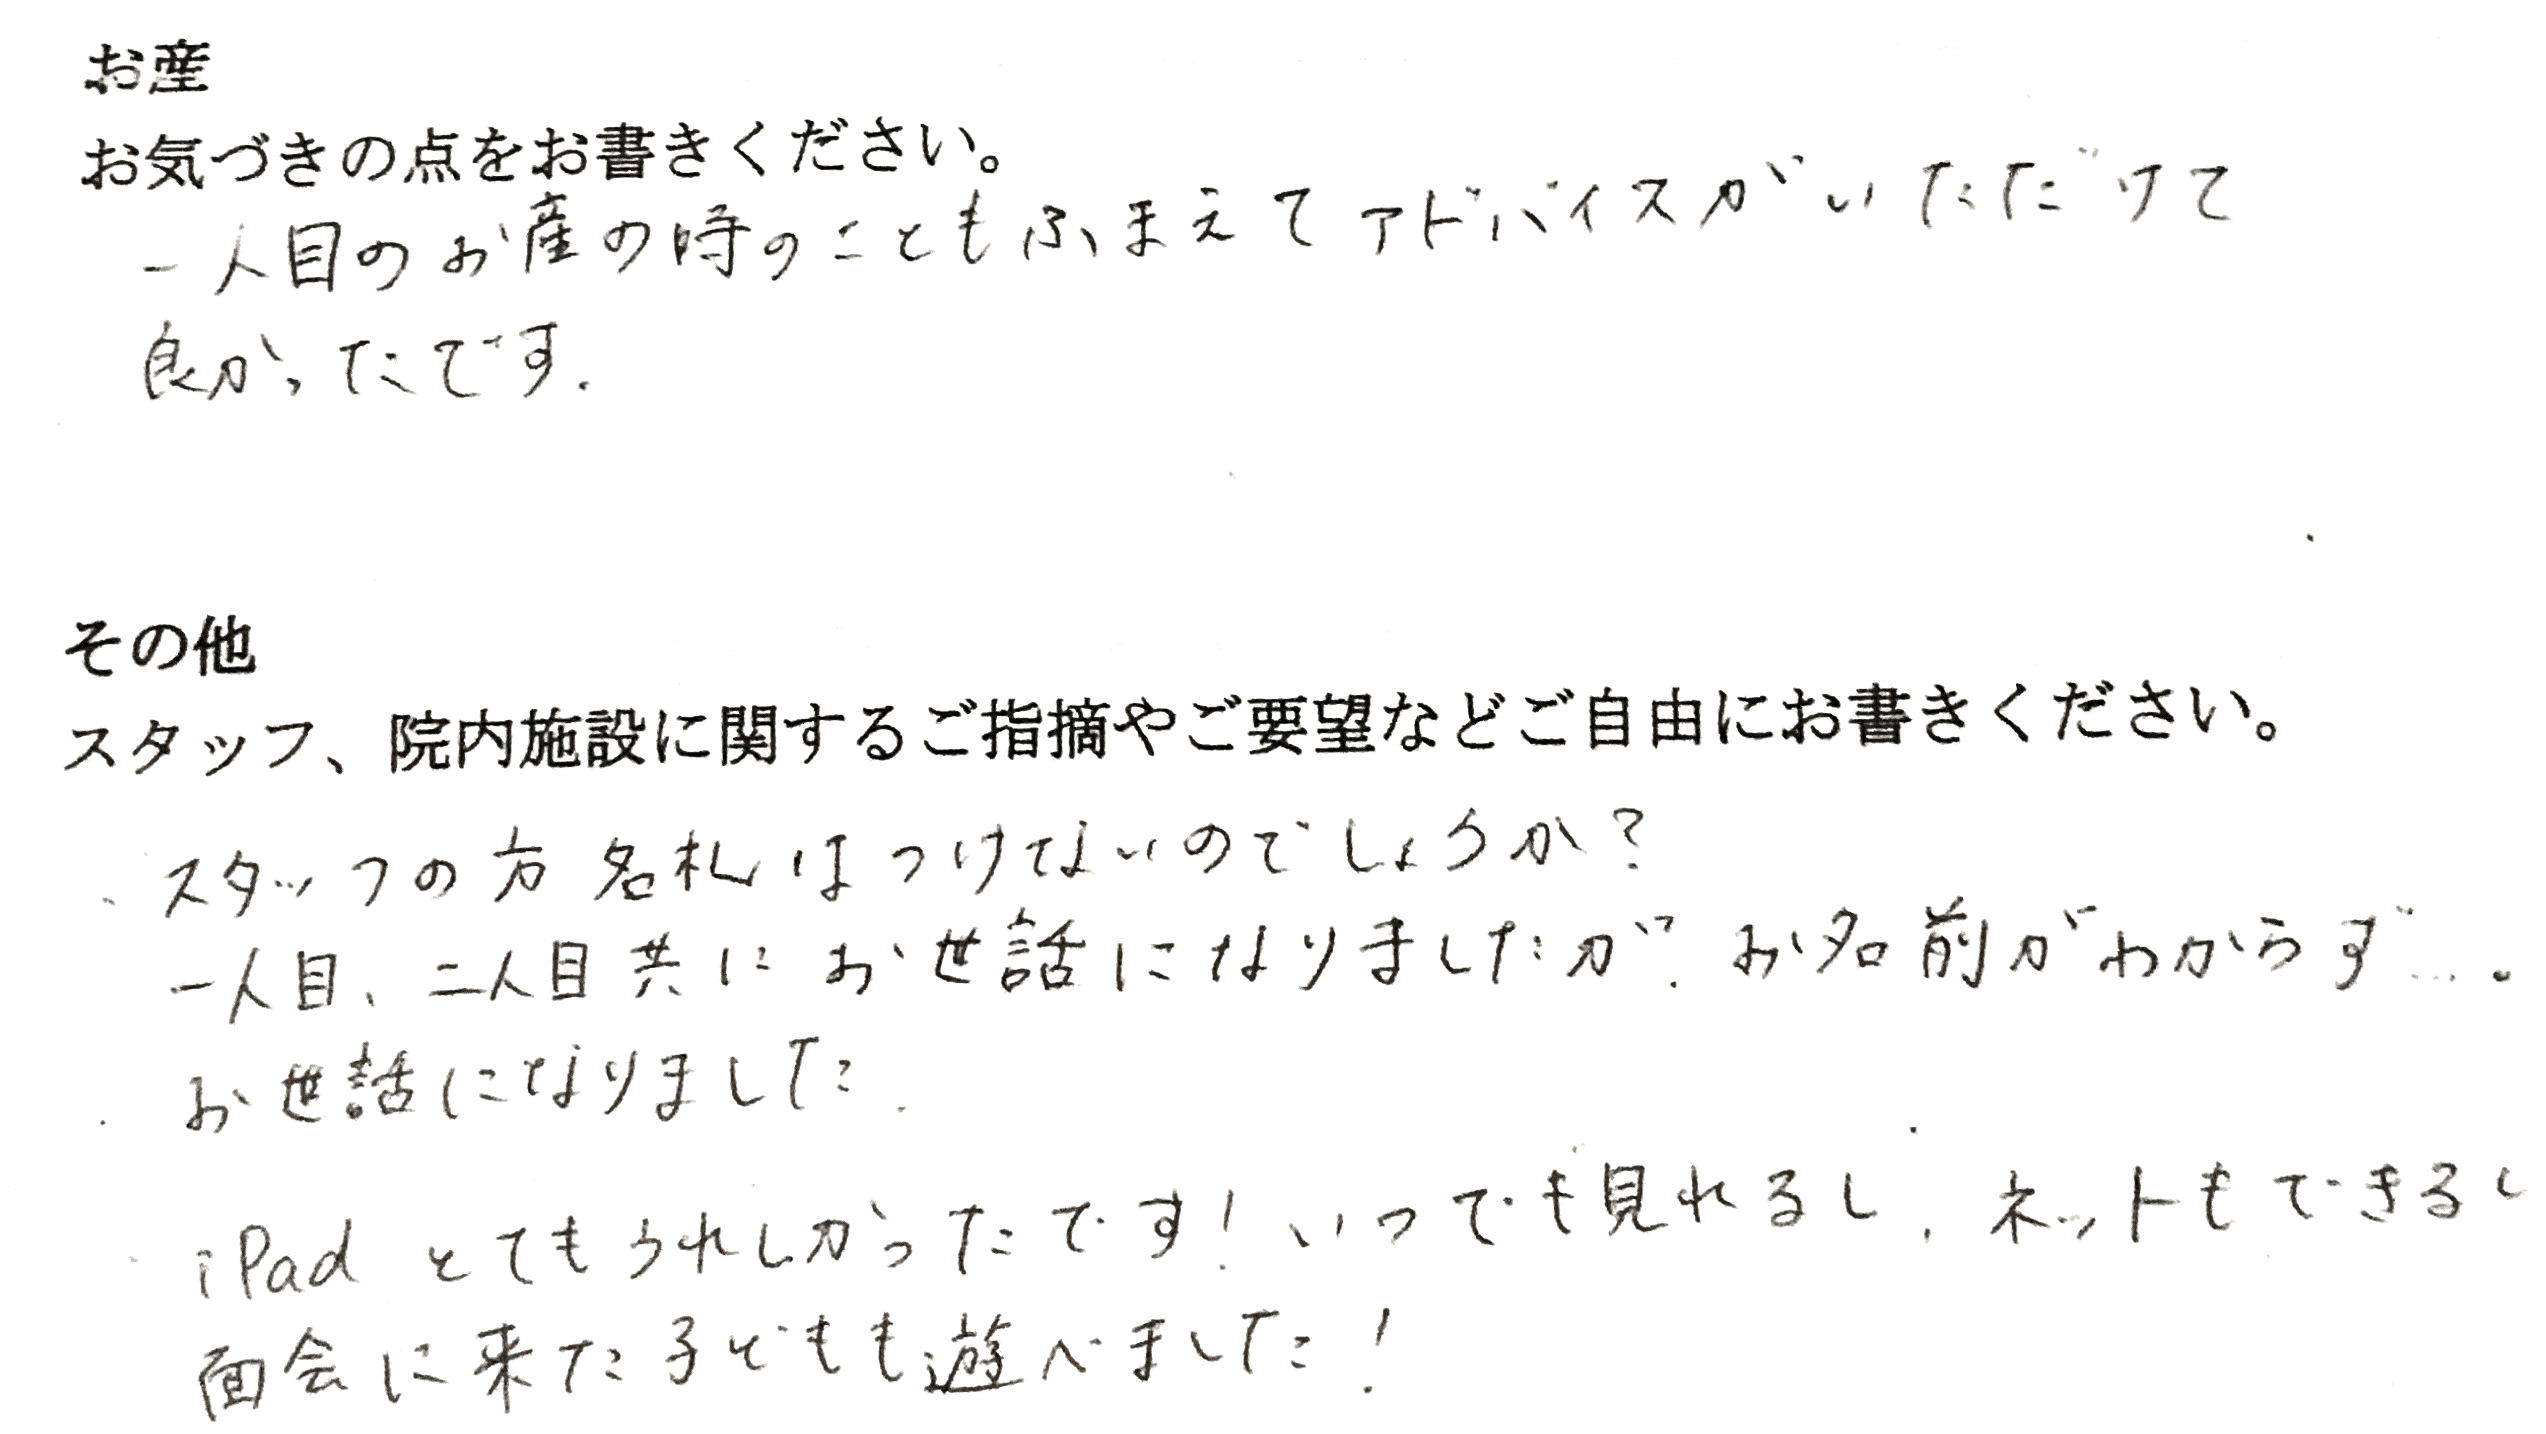 お産
お気づきの点をお書きください。
一人目のお産の時のこともふまえてアドバイスがいただけて
良かったです.
その他
スタッフ、院内施設に関するご指摘やご要望などご自由にお書きください。
・スタッフの方 名札はつけてないのでしょうか?
一人目、二人目共にお世話になりましたが、お名前がわからず…。
・お世話になりました.
・iPad とてもうれしかったです!いつでも見れるし、ネットもできるし
面会に来た子どもも遊べました!